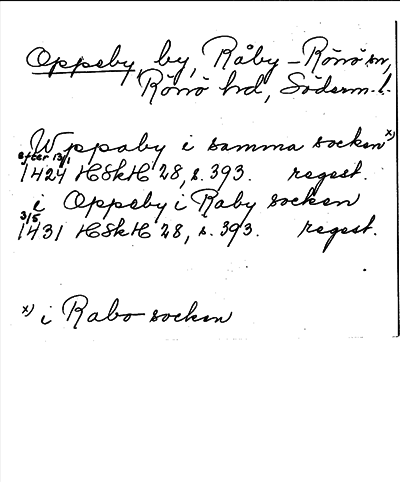 Oppeby, by, Råby-Rönö sn,
Rönö hd, Söderm. l.
Wppaby i samma socken x)
efter 13/1
1424 HSkH 28, s. 393. regest.
i Oppeby i Raby socken
3/5
1431 HSkH 28, s. 393. regest.
x) i Rabo socken